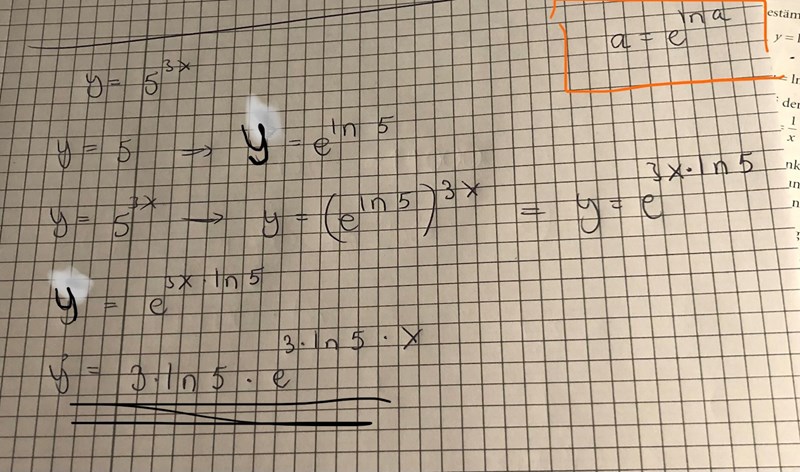 a = e^{ln a}
y = 5^{3x}
y = 5 → y = e^{ln 5}
y = 5^{3x} → y = (e^{ln 5})^{3x} = y = e^{3x·ln 5}
y = e^{3x·ln 5}
y' = 3·ln 5 · e^{3·ln 5·x}
estäm
y =
= ln
der
= 1/x
nk
n